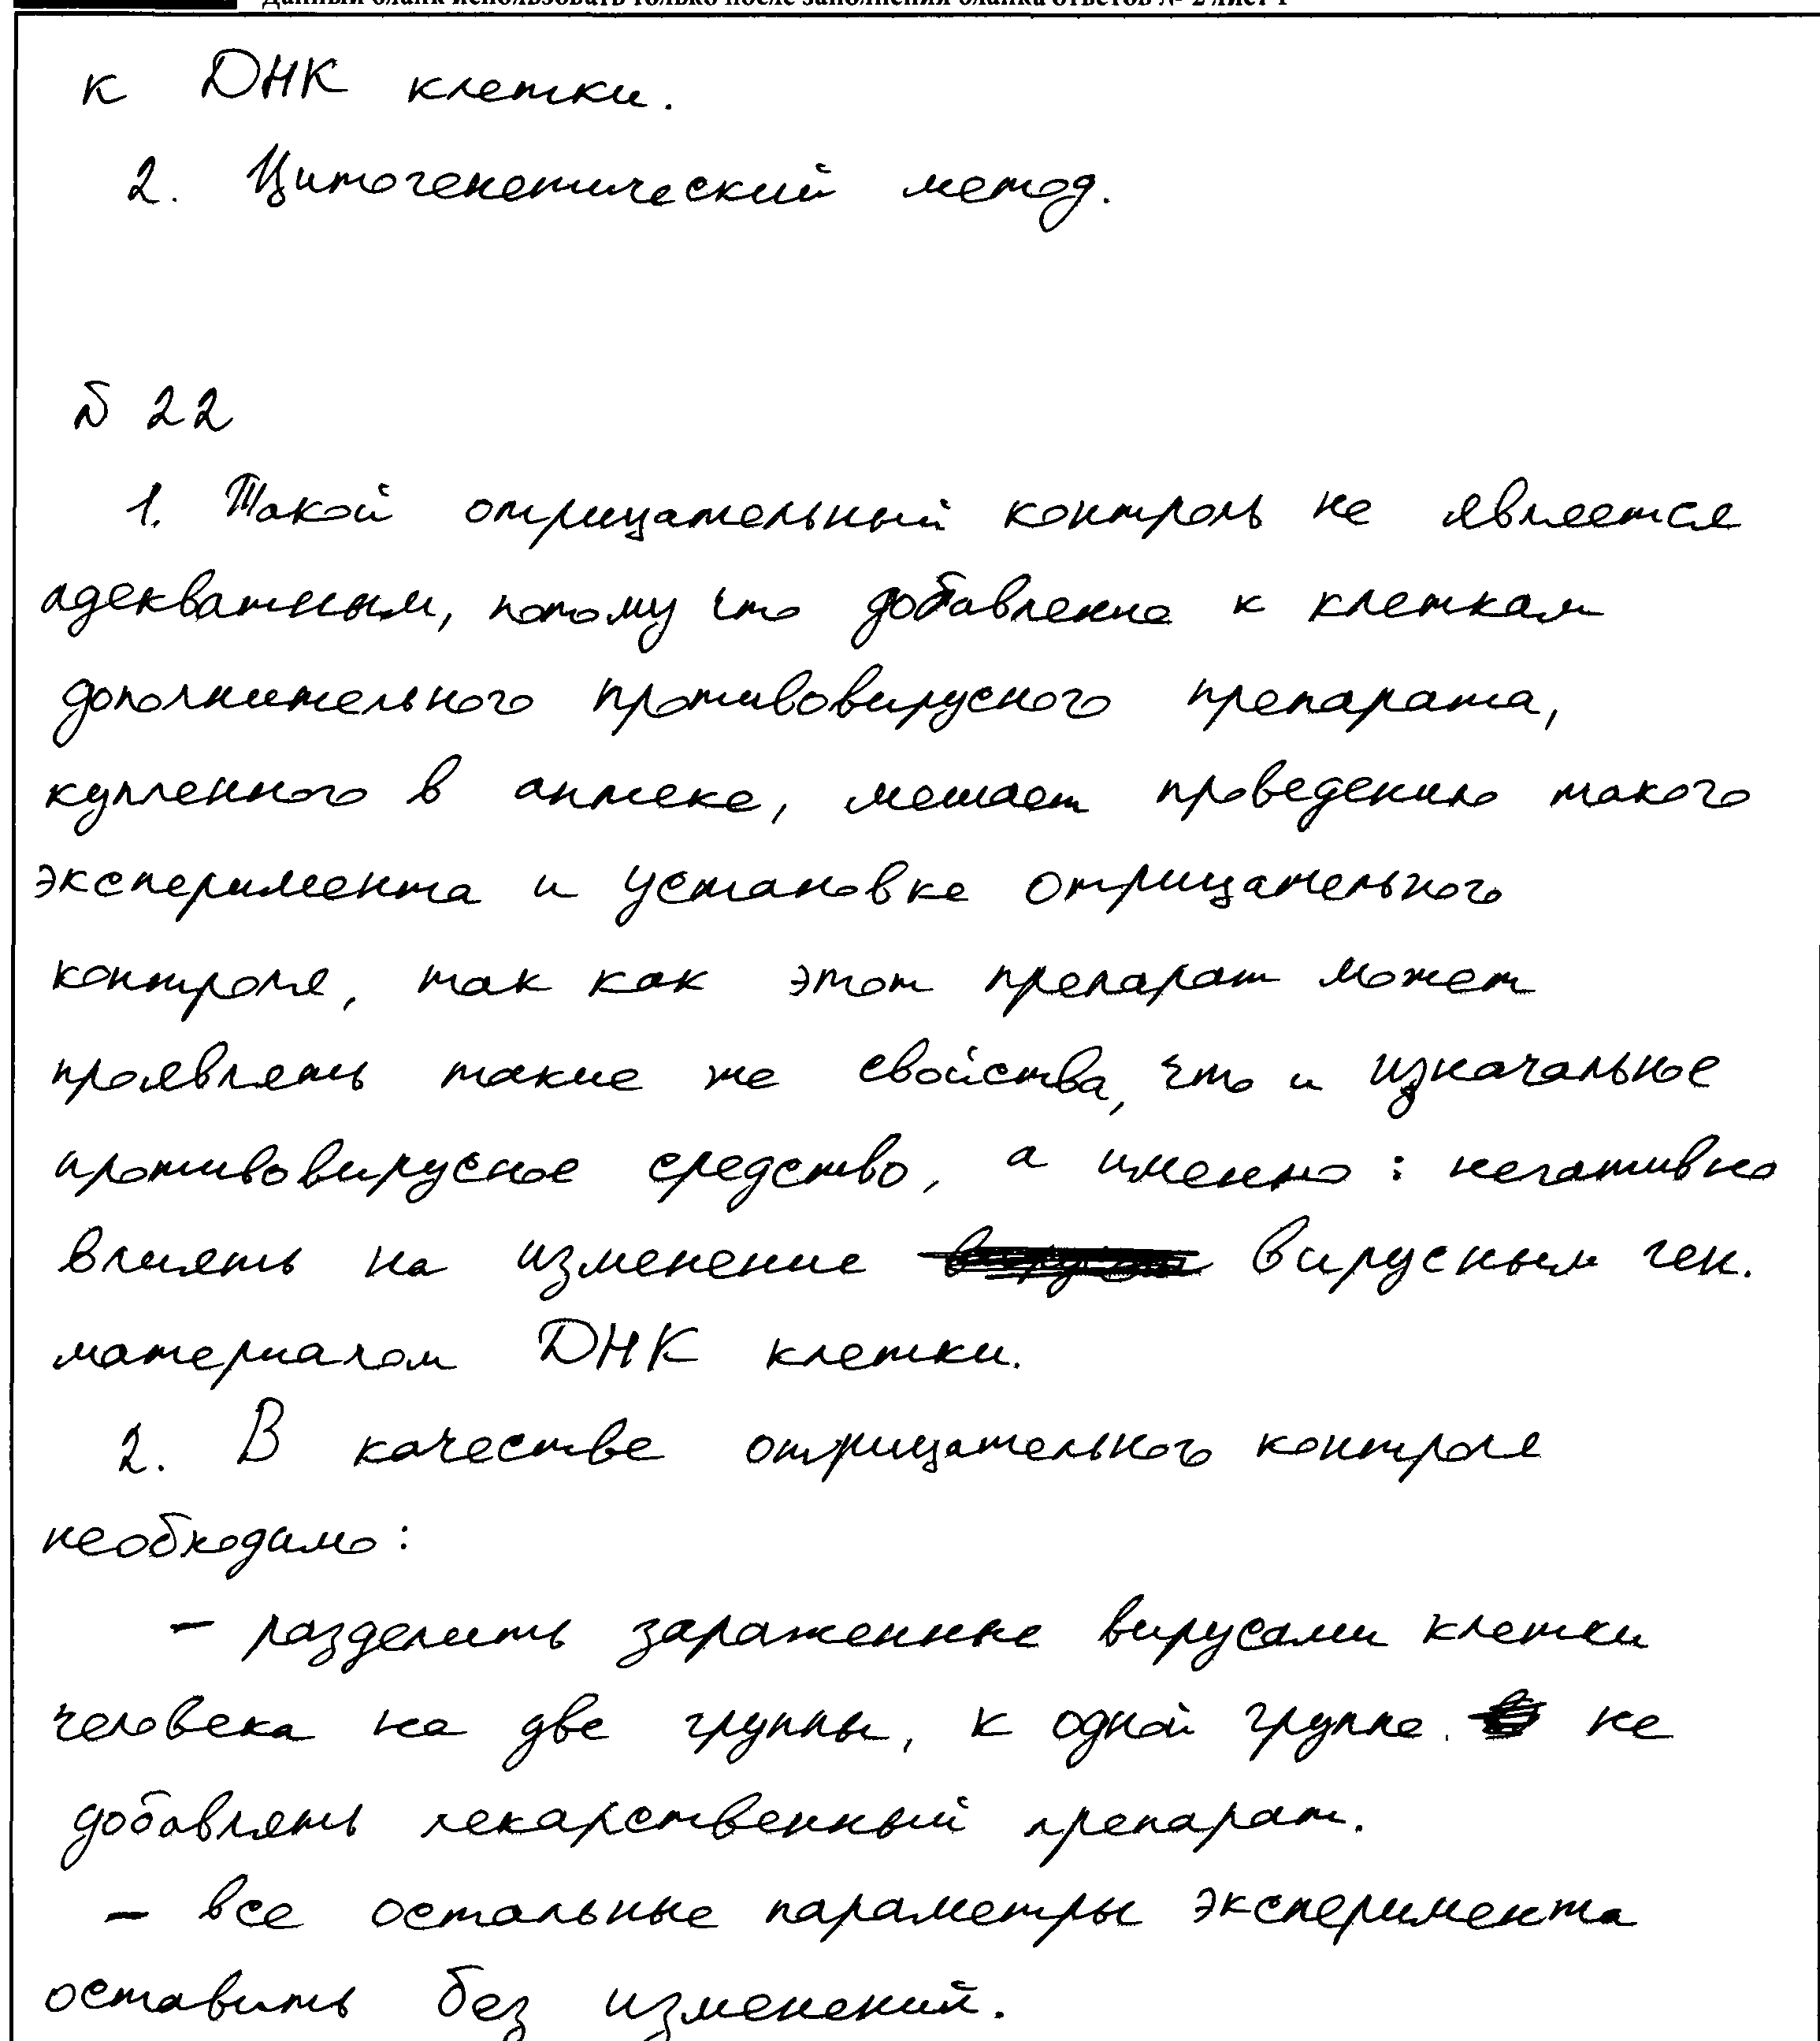 Данный бланк использовать только после заполнения бланка ответов № 2 лист 1
к ДНК клетки.
2. Цитогенетический метод.
№ 22
1. Такой отрицательный контроль не является
адекватным, потому что добавление к клеткам
дополнительного противовирусного препарата,
купленного в аптеке, мешает проведению такого
эксперимента и установке отрицательного
контроля, так как этот препарат может
проявлять такие же свойства, что и изначальное
противовирусное средство, а именно: негативно
влиять на изменение вирусным ген.
материалом ДНК клетки.
2. В качестве отрицательного контроля
необходимо:
- разделить зараженные вирусами клетки
человека на две группы, к одной группе не
добавлять лекарственный препарат.
- все остальные параметры эксперимента
оставить без изменений.